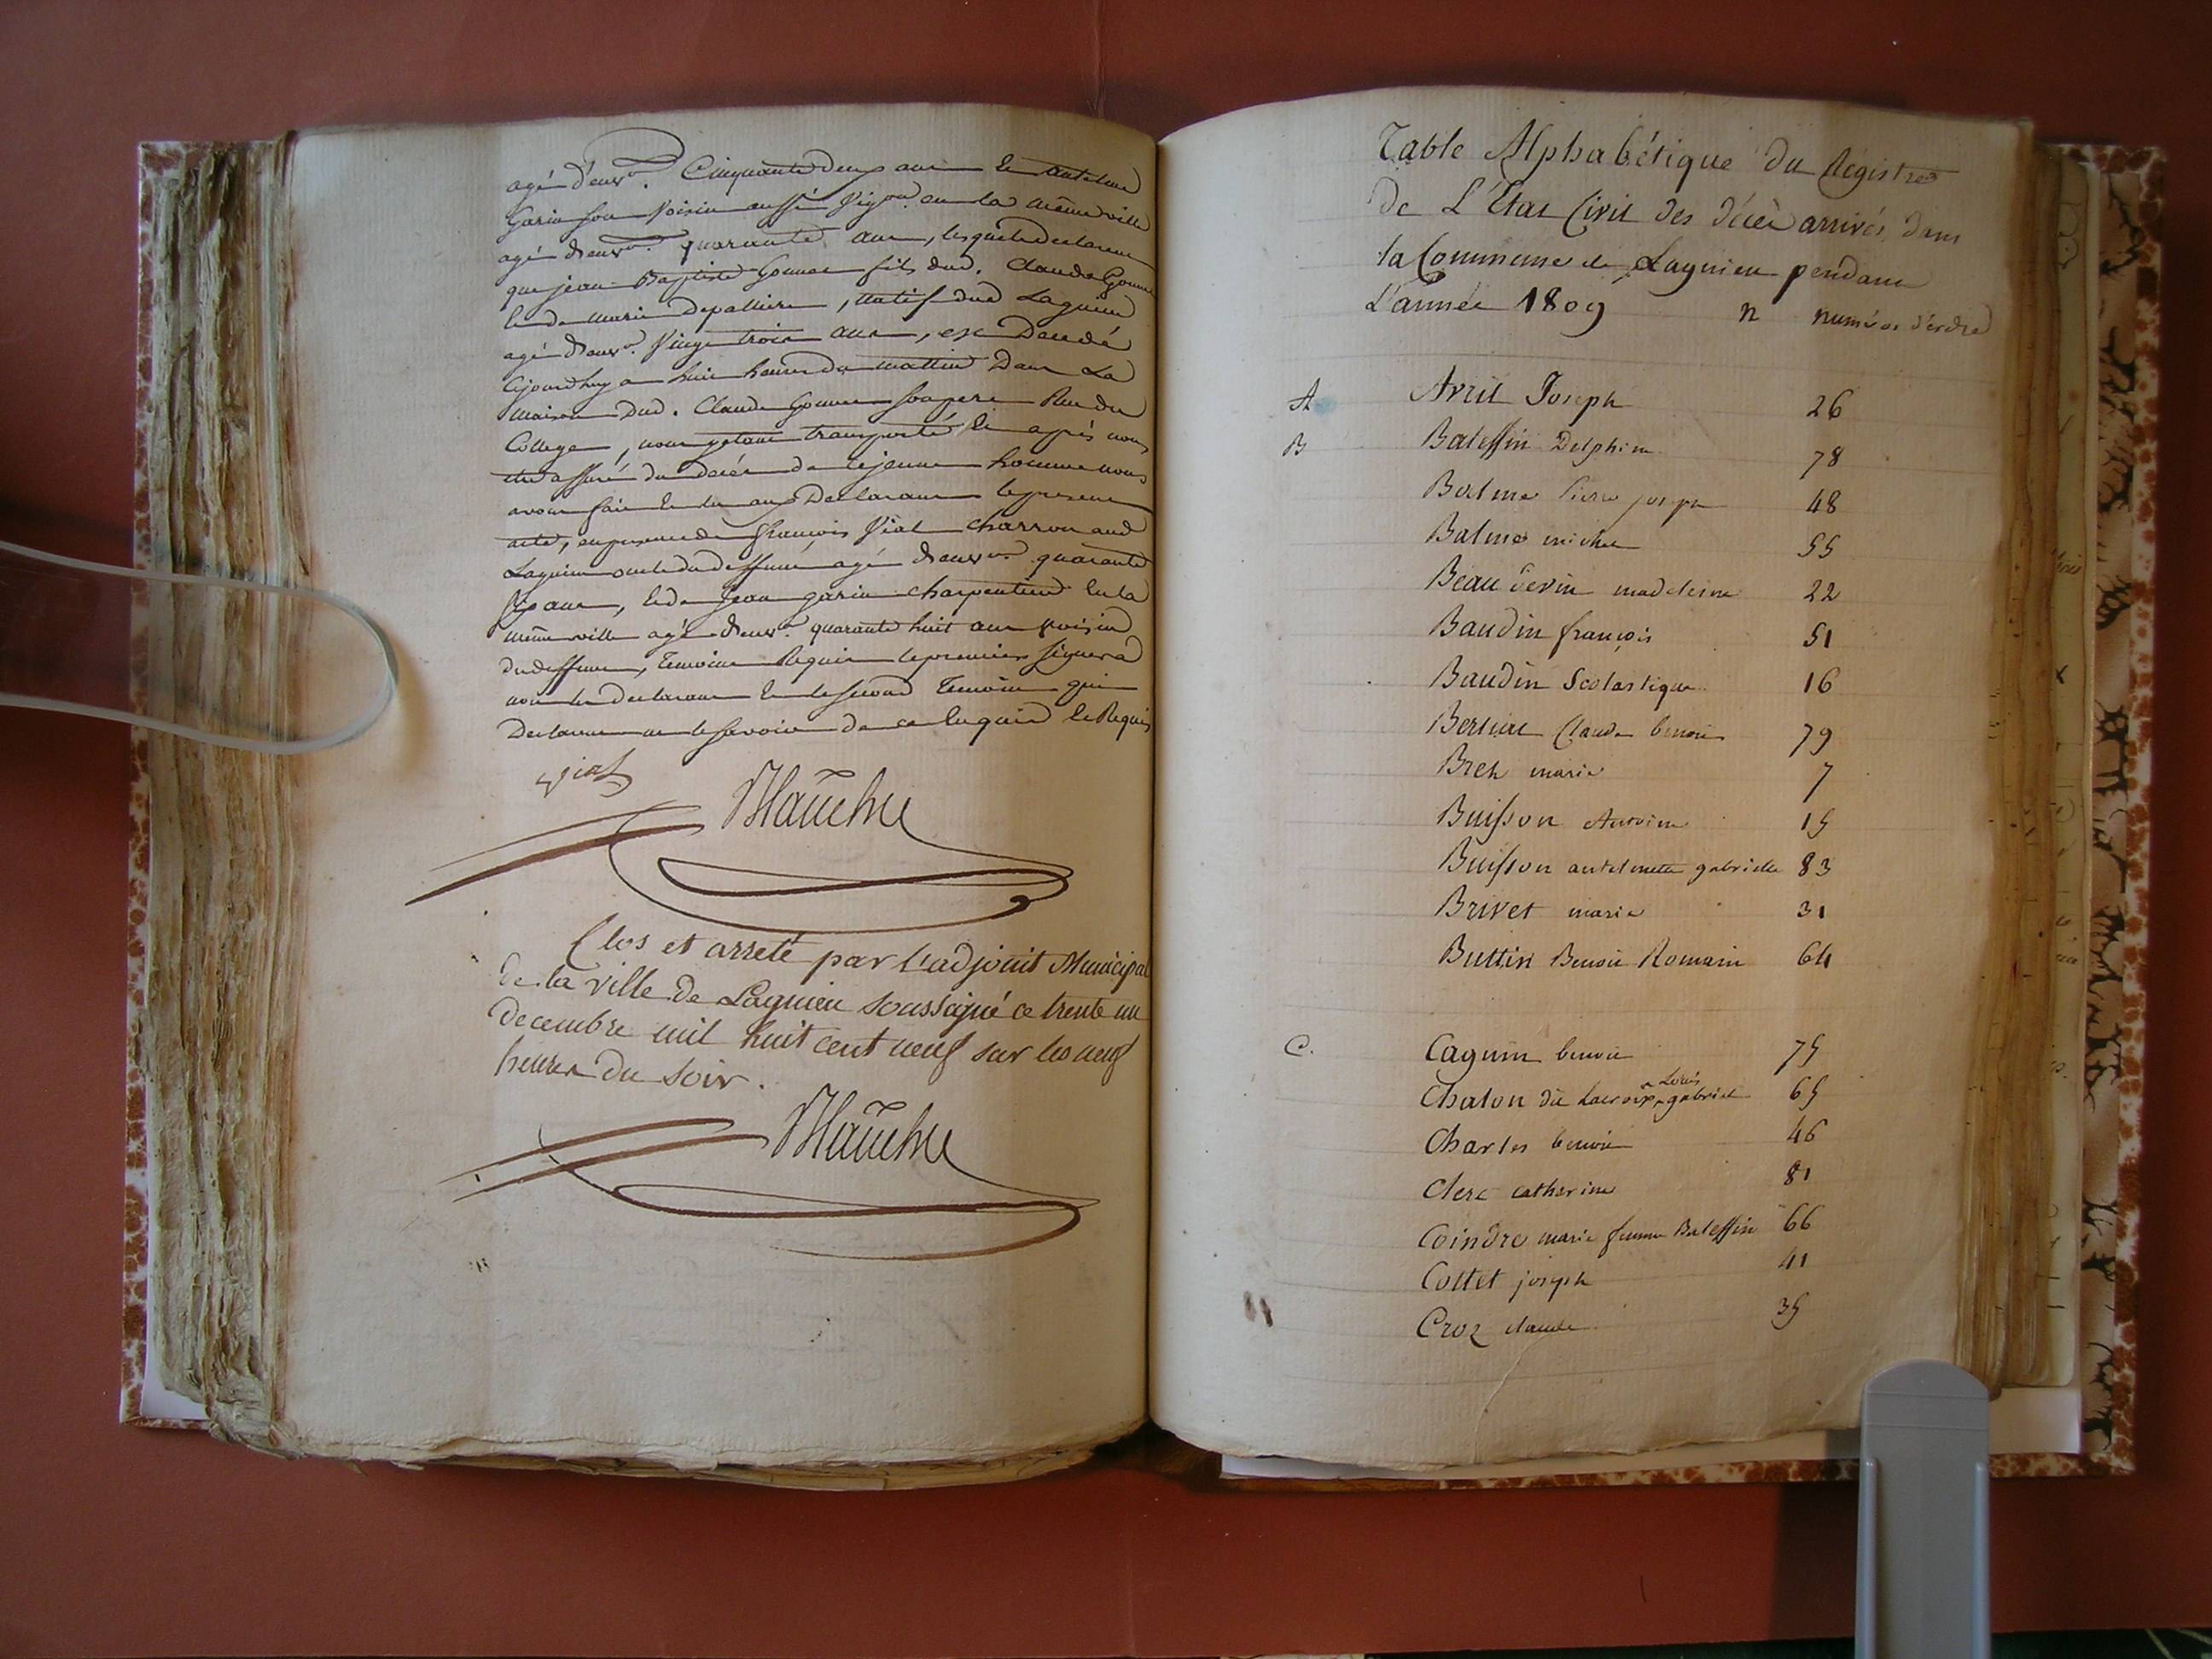 agé d'env.on Cinquante deux ans et antelme
Garin son Voisin aussi Vigon en la même ville
agé d'env.on quarante ans, lesquels declarent
que jean Baptiste Gonnet fils dud. Claude Gonnet
et de marie depalliere, natif dud Lagnieu
agé d'env.on Vingt trois ans, est Decedé
cejourdhuy a huit heures du mattin Dans La
maison Dud. Claude Gonnet son pere Rue du
College, nous y etant transporté et après nous
etre assuré du decés de ce jeune homme nous
avons fait et lu aux Declarants le present
acte, en presence de françois Vial charron aud
Lagnieu oncle du deffunt agé d'env.on quarante
six ans, et de Jean garin charpentier en la
même ville agé d'env.on quarante huit ans voisin
du deffunt, Temoins Requis le premier signera
non les declarants et le second Temoin qui
Declarent ne le savoir de ce enquis et Requis
Vial
Blanche
Clos et arreté par l'adjoint Municipal
de la ville de Lagnieu soussigné ce trente un
decembre mil huit cent neuf sur les neuf
heures du soir.
Blanche
Table Alphabétique du Régistre
De L'Etat Civil des décès arrivés dans
la Commune de Lagnieu pendant
L'année 1809 n numéros d'ordre
A Avril Joseph 26
B Baleffin Delphine 78
Balme Pierre joseph 48
Balme michel 55
Beau devin madeleine 22
Baudin françois 51
Baudin Scolastique 16
Berliat Claude benoit 79
Breh marie 7
Buisson Antoine 15
Buisson antelmette gabrielle 83
Brivet marie 31
Buttin Benoit Romain 64
C. Cagnin benoit 75
Chalon dit Lacroix Louis gabriel 65
Charles benoit 46
Clerc catherine 81
Coindre marie femme Baleffin 66
Cottet joseph 41
Croz claude 35